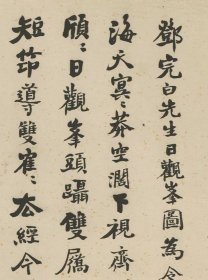 鄧完白先生日觀峯圖為
海天冥〻莽空濶下視齊
頎〻日觀峯頭躡雙屩
短笻導雙崔〻太經今